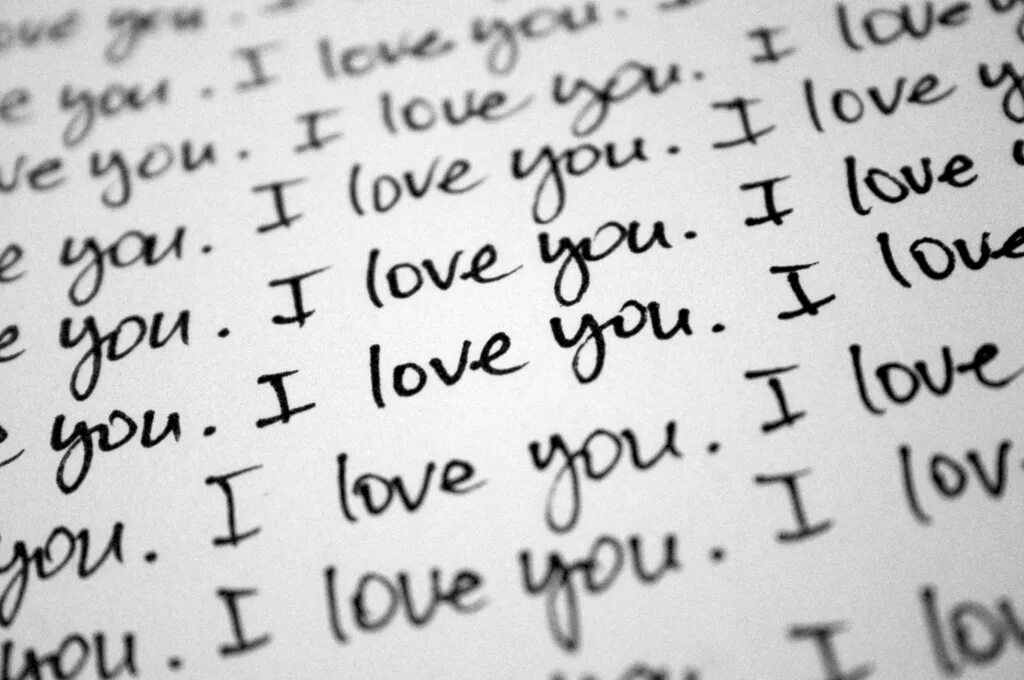 ove you. I
e you. I love you. I
ve you. I love you. I love y
e you. I love you. I love y
e you. I love you. I love y
e you. I love you. I love
you. I love you. I love
you. I love you. I lov
you. I lo